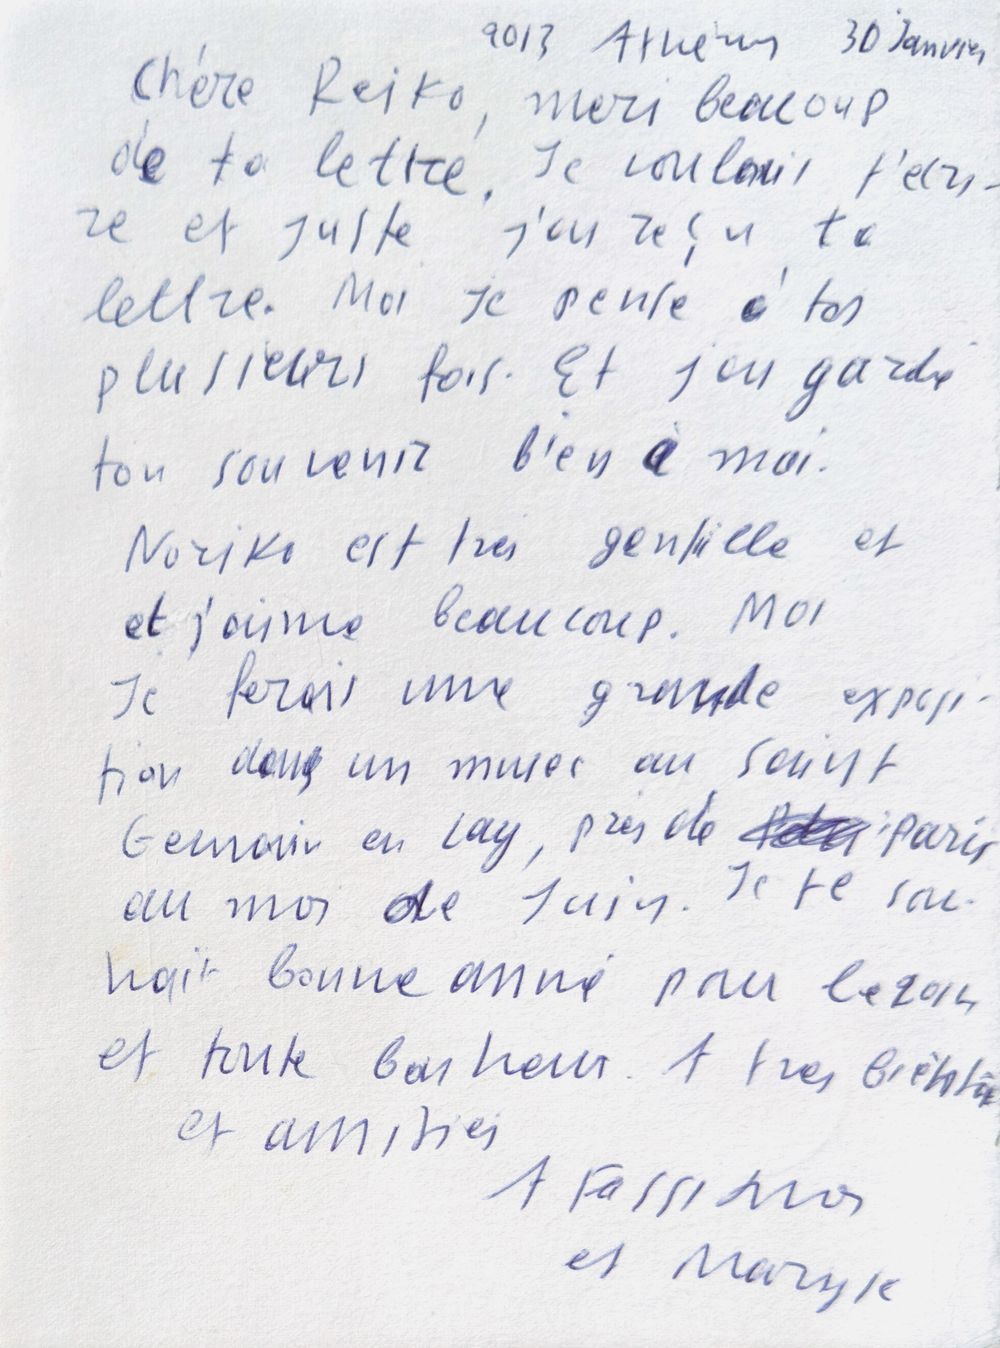 2013 Athènes 30 Janvier
Chère Reiko, merci beaucoup
de ta lettre. Je voulais t'écri-
re et juste j'ai reçu ta
lettre. Moi je pense à toi
plusieurs fois. Et j'ai gardé
ton souvenir bien à moi.
Noriko est très gentille et
et j'aime beaucoup. Moi
Je ferais une grande exposi-
tion dans un musée au Saint
Germain en Lay, près de Paris
au moi de Juin. Je te sou-
hait bonne anné pour le 2013
et toute bonheur. A très bientôt
et amitiés
A Fassianos
et Maryk